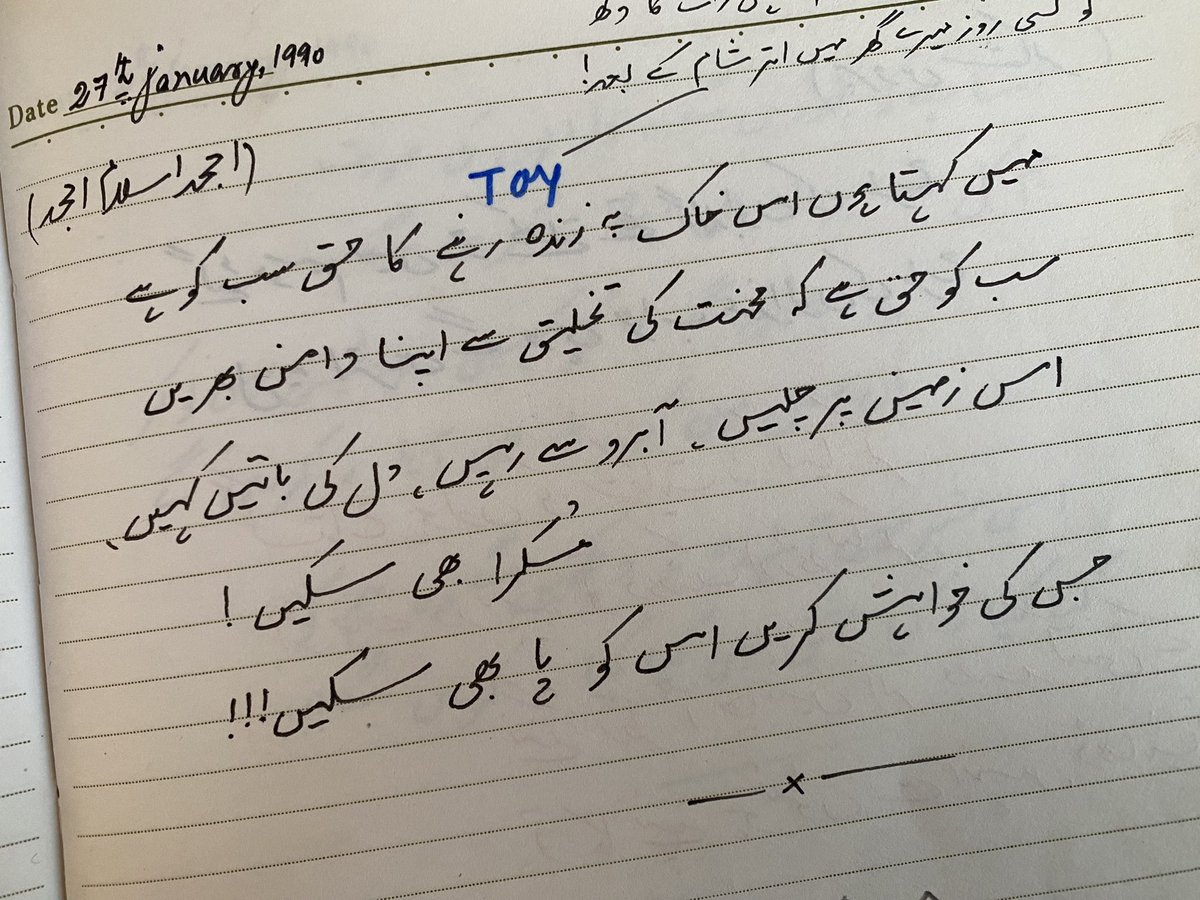 Date 27th January, 1990
کسی روز میرے گھر میں اتر شام کے بعد!
(امجد اسلام امجد)
TOY
میں کہتا ہوں اس خاک پہ زندہ رہنے کا حق سب کو ہے
سب کو حق ہے کہ محنت کی تخلیق سے اپنا دامن بھریں
اس زمین پر چلیں، آبرو سے رہیں، دل کی باتیں کہیں،
مُسکرا بھی سکیں!
جس کی خواہش کریں اس کو پا بھی سکیں!!!
x